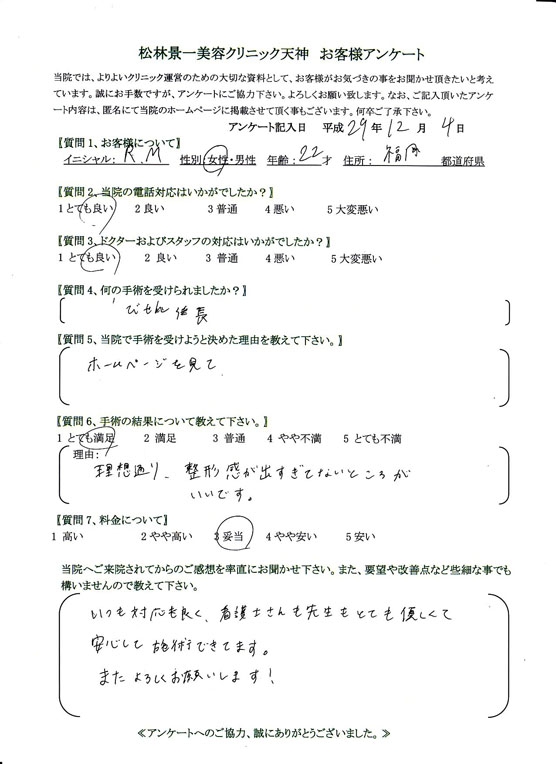 松林景一美容クリニック天神　お客様アンケート
当院では、よりよいクリニック運営のための大切な資料として、お客様がお気づきの事をお聞かせ頂きたいと考え
ています。誠にお手数ですが、アンケートにご協力下さい。よろしくお願い致します。なお、ご記入頂いたアンケ
ート内容は、匿名にて当院のホームページに掲載させて頂く事もございます。何卒ご了承下さい。
アンケート記入日　平成 29 年 12 月 4 日
【質問 1、お客様について】
イニシャル: R. M　性別:女性・男性　年齢: 22 才　住所: 福岡　都道府県
【質問 2、当院の電話対応はいかがでしたか？】
1 とても良い　2 良い　3 普通　4 悪い　5 大変悪い
【質問 3、ドクターおよびスタッフの対応はいかがでしたか？】
1 とても良い　2 良い　3 普通　4 悪い　5 大変悪い
【質問 4、何の手術を受けられましたか？】
びせん 延長
【質問 5、当院で手術を受けようと決めた理由を教えて下さい。】
ホームページを見て
【質問 6、手術の結果について教えて下さい。】
1 とても満足　2 満足　3 普通　4 やや不満　5 とても不満
理由:
理想通り、整形感が出すぎてないところが
いいです。
【質問 7、料金について】
1 高い　2 やや高い　3 妥当　4 やや安い　5 安い
当院へご来院されてからのご感想を率直にお聞かせ下さい。また、要望や改善点など些細な事でも
構いませんので教えて下さい。
いつも対応も良く、看護士さんも先生もとても優しくて
安心して施術できてます。
またよろしくお願いします！
≪アンケートへのご協力、誠にありがとうございました。≫